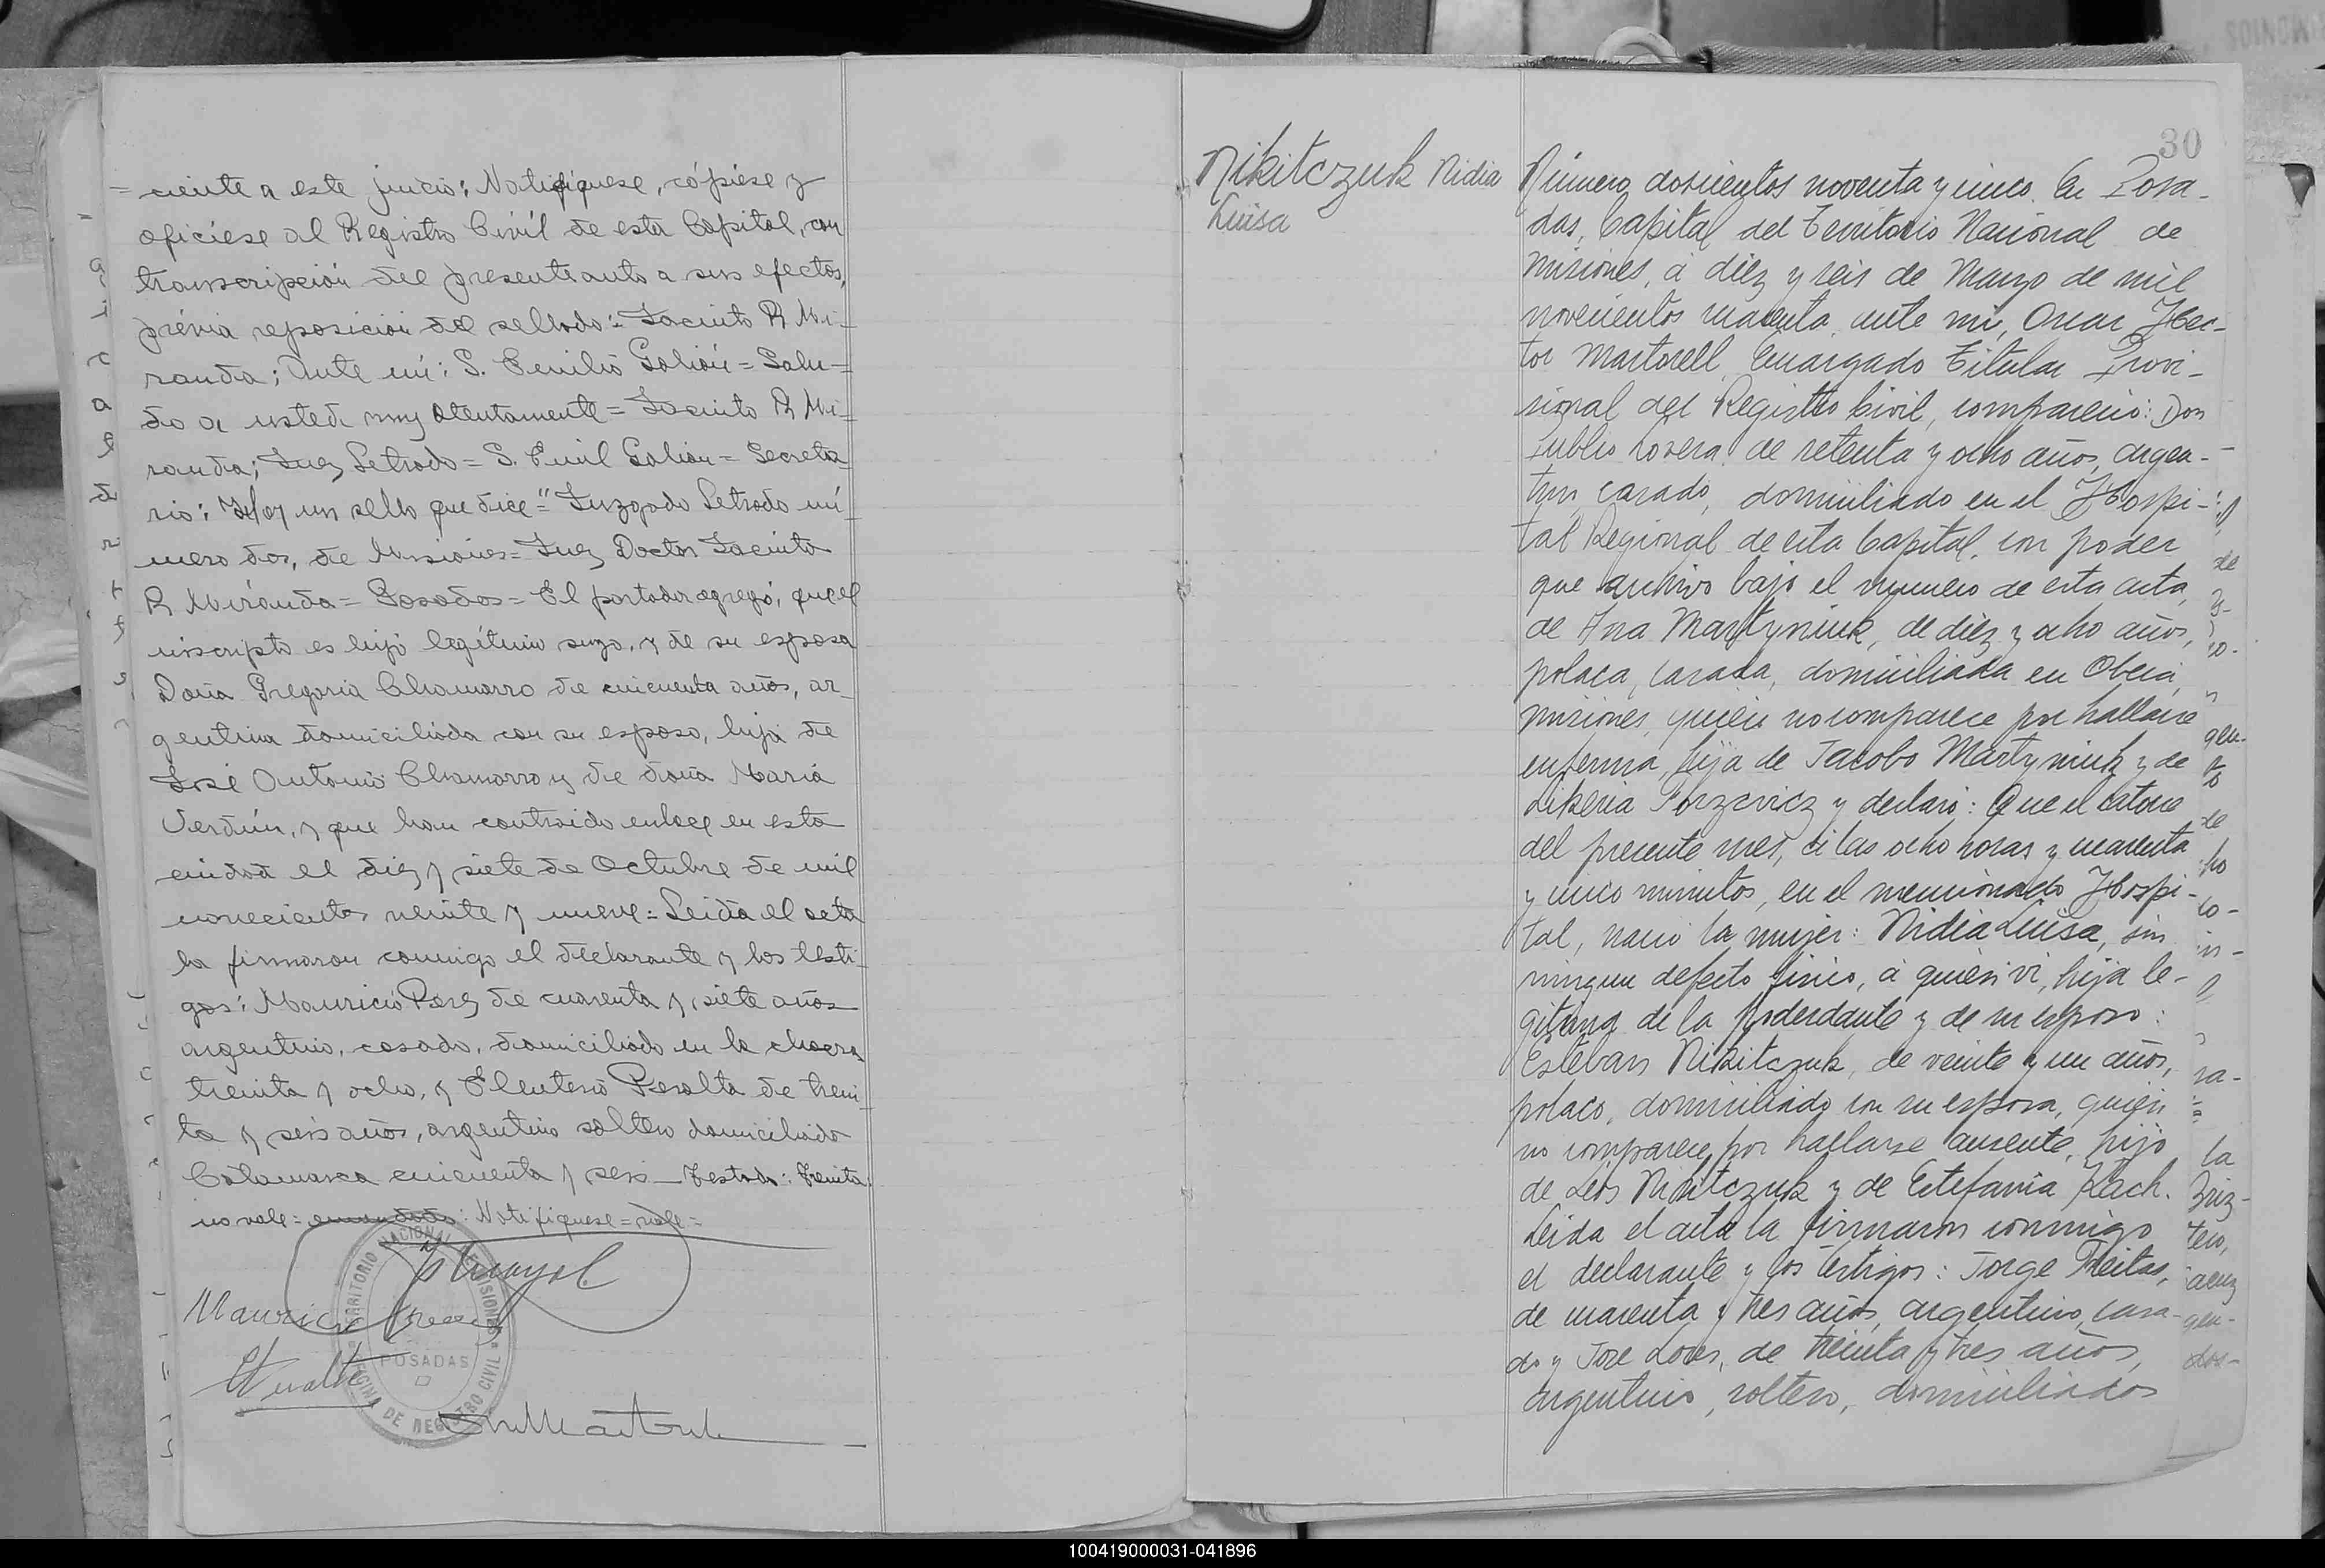 ciente a este juicio: Notifíquese, cópiese y
ofíciese al Registro Civil de esta Capital, con
transcripción del presente auto a sus efectos,
prévia reposición del sellado: Jacinto R Mi-
randa; Ante mí: S. Galión = Salu-
do a usted muy atentamente = Jacinto R Mi-
randa; Juez Letrado = S. Galión = Secreta
rio: Hay un sello que dice = "Juzgado Letrado nú-
mero dos, de Misiones = Juez Doctor Jacinto
R Miranda = Posadas = El portador agregó, que el
inscripto es hijo legítimo suyo, y de su esposa
Doña Gregoria Chamorro de cincuenta años, ar-
gentina domiciliada con su esposo, hija de
José Antonio Chamorro y de doña María
Verdún, y que han contraido enlace en esta
ciudad el diez y siete de Octubre de mil
novecientos veinte y nueve = Leida el acta
la firmaron conmigo el declarante y los testi-
gos: Mauricio Perez de cuarenta y siete años
argentino, casado, domiciliado en la chacra
treinta y ocho, y Eleuterio Peralta de trein-
ta y seis años, argentino soltero domiciliado
Catamarca cincuenta y seis — Testado: treinta
no vale = enmendado: Notifíquese = vale =
TERRITORIO NACIONAL DE MISIONES
POSADAS
OFICINA DE REGISTRO CIVIL
30
Nikitczuk Nidia
Luisa
Número doscientos noventa y cinco. En Posa-
das, Capital del Territorio Nacional de
Misiones, á diez y seis de Marzo de mil
novecientos cuarenta, ante mí, Oscar Hec-
tor Martorell, Encargado Titular Provi-
sional del Registro Civil, compareció: Don
Publio Lovera, de setenta y ocho años, argen-
tino, casado, domiciliado en el Hospi-
tal Regional de esta Capital, con poder
que archivo bajo el número de esta acta,
de Ana Martyniuk, de diez y ocho años,
polaca, casada, domiciliada en Oberá,
Misiones, quien no comparece por hallarse
enferma, hija de Jacobo Martyniuk y de
Likeria y declaró: Que el catorce
del presente mes, á las ocho horas y cuarenta
y cinco minutos, en el mencionado Hospi-
tal, nació la mujer: Nidia Luisa, sin
ningun defecto físico, á quien vi, hija le-
gitima de la poderdante y de su esposo:
Esteban Nikitczuk, de veinte y un años,
polaco, domiciliado con su esposa, quien
no comparece por hallarse ausente, hijo
de León Nikitczuk y de Estefania Kach.
Leida el acta la firmaron conmigo
el declarante y los testigos: Jorge Freitas,
de cuarenta y tres años, argentino, casa-
do y José Loves, de treinta y tres años,
argentino, soltero, domiciliados
100419000031-041896